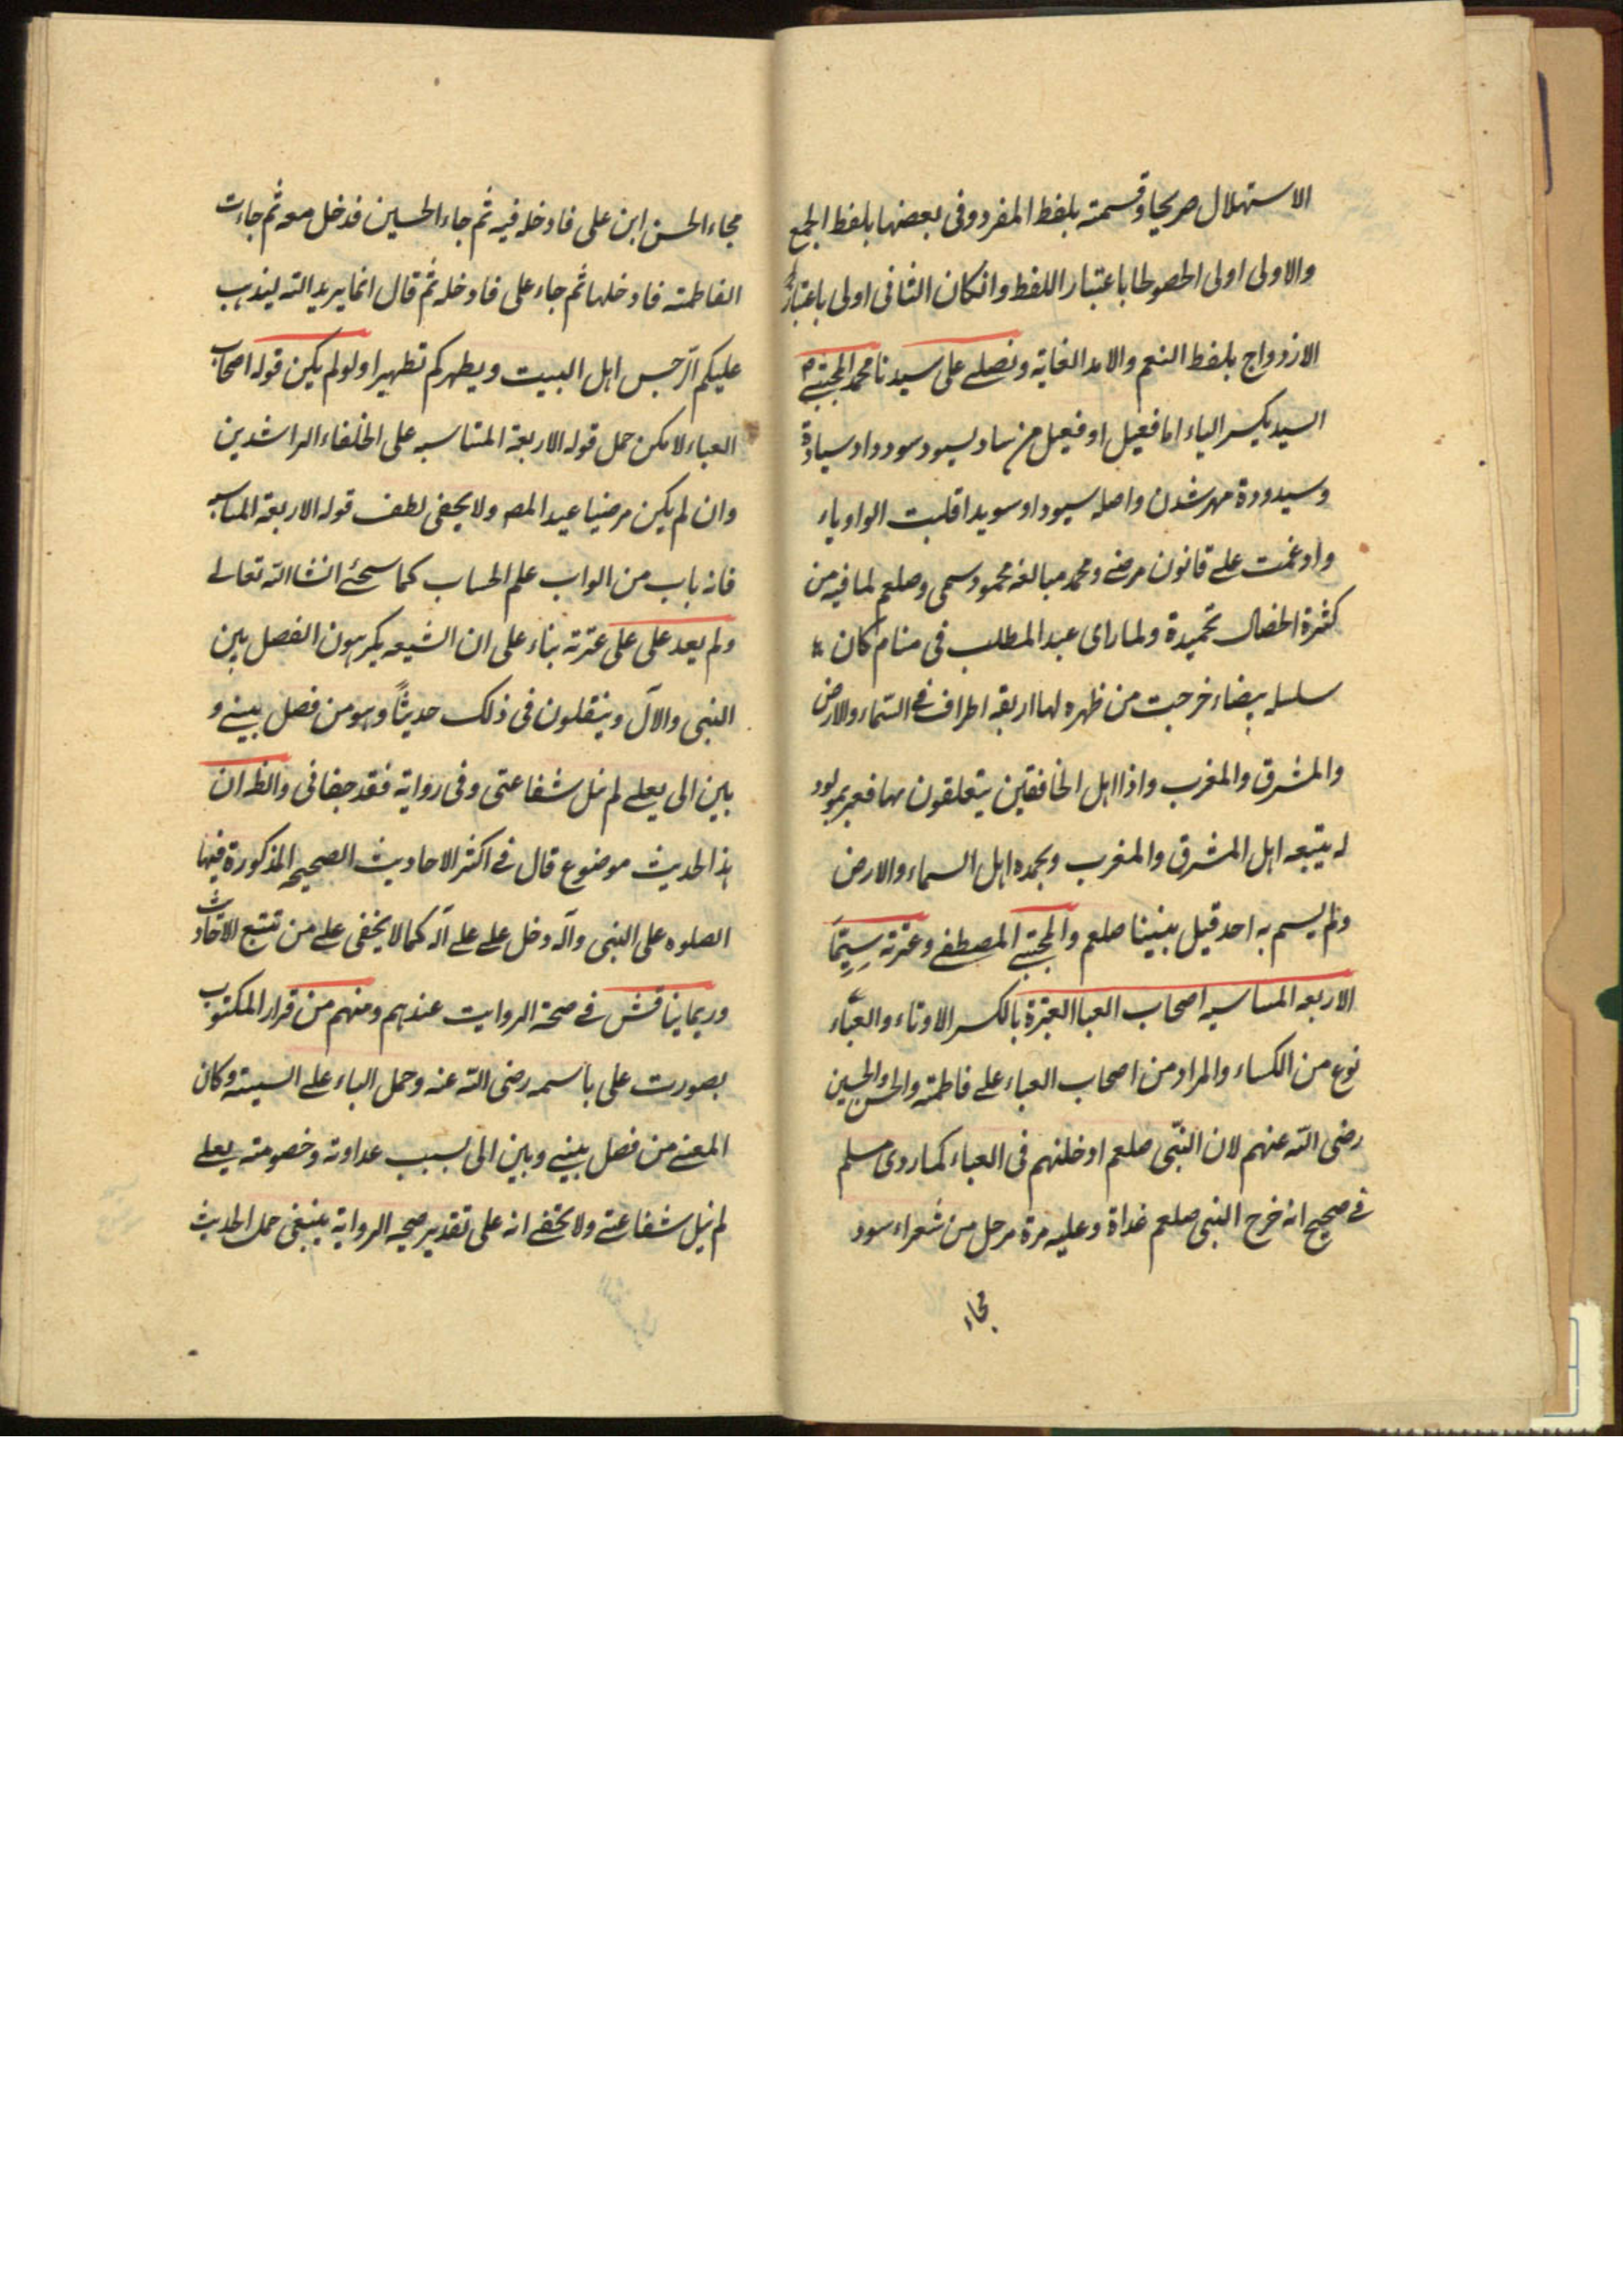 الاستهلال صريحا وقسمته بلفظ المفرد وفى بعضها بلفظ الجمع
والاولى اولى الحصوطا باعتبار اللفظ وانكان الثانى اولى باعتبار
الازدواج بلفظ النعم والامد الغاية ونصلے على سيدنا محمد المجتبے
السيد بكسر الياء اما فعيل او فيعل من ساد يسود سود وا وسيادة
وسيدودة مهر شدن واصله سيود او سويد اقلبت الواو ياء
وادغمت علے قانون مرضے ومحمد مبالغه محمود سمى وصلعم لما فيه من
كثرة الخصال تحميدة ولما راى عبد المطلب فى منام كان
سلسله بيضاء خرجت من ظهره لها اربقه اطراف فے السماء والارض
والمشرق والمغرب واذا اهل الخافقين يتعلقون بها فعبر بمولود
له يتبعه اهل المشرق والمغرب ويحمده اهل السماء والارض
ولم يسم به احد قبل نبينا صلعم والمجتبے المصطفے وعترته سيما
الاربعه المناسبه اصحاب العبا العترة بالكسر الاوتاء والعباء
نوع من الكساء والمراد من اصحاب العباء علے فاطمته والحسن والحسين
رضى الله عنهم لان النبى صلعم ادخلنهم فى العباء كما روى مسلم
فے صحيح انه خرج النبى صلعم غداة وعليه مرة مرحل من شعراء سود
مجاء
مجاء الحسن ابن على فادخله فيه ثم جاء الحسين فدخل معه ثم جاءت
الفاطمته فادخلها ثم جاء على فادخله ثم قال انما يريد الله ليذهب
عليكم الرجس اهل البيت ويطهركم تطهيرا ولو لم يكن قوله اصحاب
العباء لامكن حمل قوله الاربعة المتناسبه على الخلفاء الراشدين
وان لم يكن مرضيا عيد المصه ولا يخفى لطف قوله الاربعة المناسبه
فانه باب من ابواب علم الحساب كما سحئے انشاالله تعالے
ولم يعد على على عترته بناء على ان الشيعه يكرهون الفصل بين
النبى والآل وينقلون فى ذلك حديثاً وهو من فصل بينے و
بين الى بعلے لم نيل شفاعتى وفى رواية فقد جفانى والظه ان
هذا الحديث موضوع قال فے اكثر الاحاديث الصحيحه المذكورة فيها
الصلوه على النبى وآله دخل علے علے آله كما لا يخفى علے من تتبع الاحاديث
وربما يناقش فے صحة الروايت عندهم ومنهم من قرار المكتوب
بصورت على باسمه رضى الله عنه وحمل الباء علے السببيته وكان
المعنے من فصل بينے وبين الى بسبب عداوته وخصومته بعلے
لم نيل شفاعتے ولا يخفے انه على تقدير صحيه الرواية ينبغى حمل الحديث